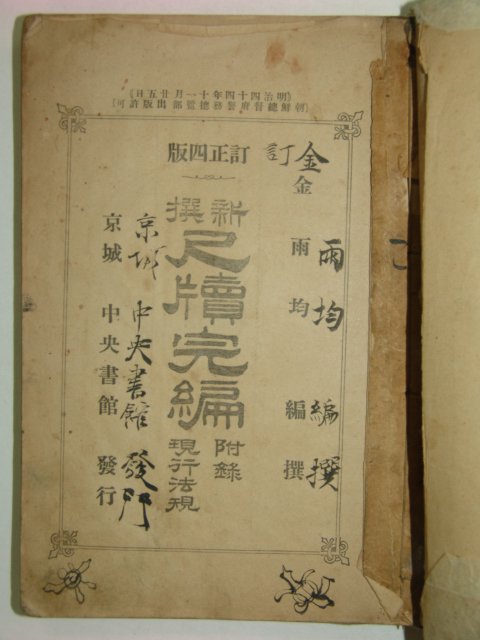 明治四十四年十一月廿五日
朝鮮總督府警務總監部出版許可
訂正四版
訂
金雨均編撰
金雨均 編撰
新撰
尺牘完編
附錄
現行法規
京城 中央書館 發行
京城 中央書館 發